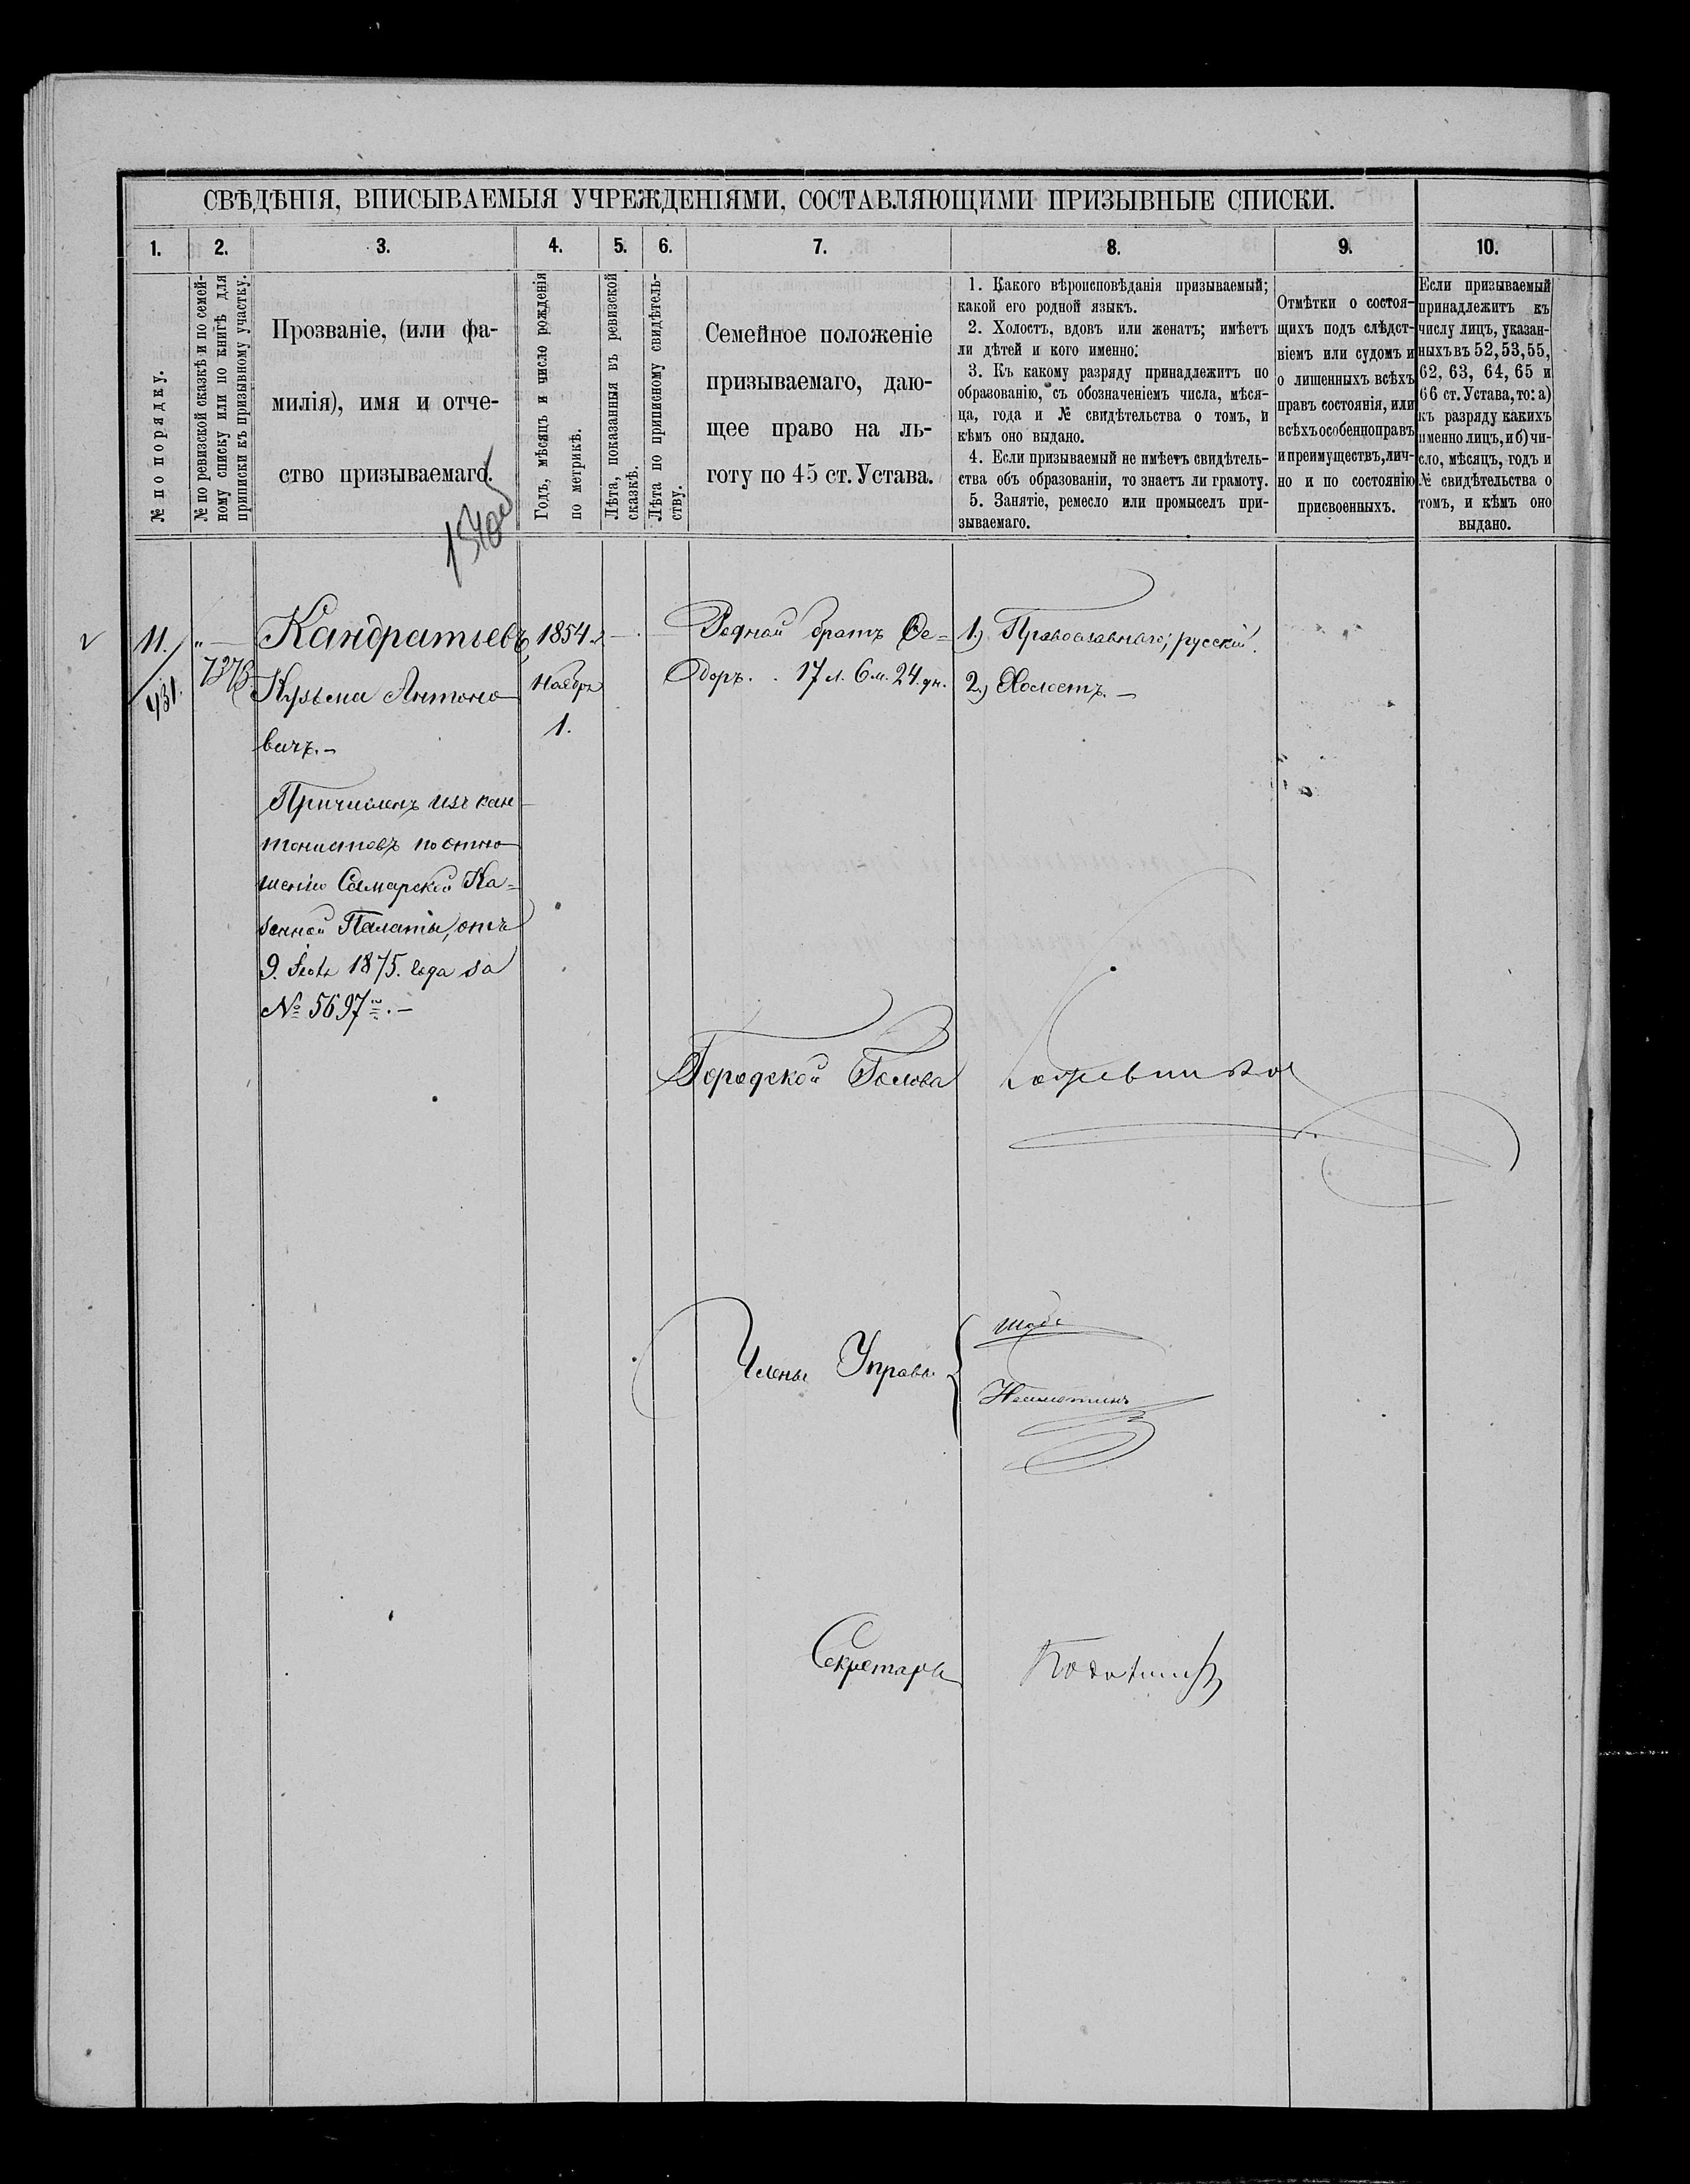 СВѢДѢНІЯ, ВПИСЫВАЕМЫЯ УЧРЕЖДЕНІЯМИ, СОСТАВЛЯЮЩИМИ ПРИЗЫВНЫЕ СПИСКИ.
1.
2.
3.
4.
5.
6.
7.
8.
9.
10.
№ по порядку.
№ по ревизской сказкѣ и по семей-
ному списку или по книгѣ для
приписки къ призывному участку.
Прозваніе, (или фа-
милія), имя и отче-
ство призываемаго.
Годъ, мѣсяцъ и число рожденія
по метрикѣ.
Лѣта, показанныя въ ревизской
сказкѣ.
Лѣта по приписному свидѣтель-
ству.
Семейное положеніе
призываемаго, даю-
щее право на ль-
готу по 45 ст. Устава.
1. Какого вѣроисповѣданія призываемый;
какой его родной языкъ.
2. Холостъ, вдовъ или женатъ; имѣетъ
ли дѣтей и кого именно:
3. Къ какому разряду принадлежитъ по
образованію, съ обозначеніемъ числа, мѣся-
ца, года и № свидѣтельства о томъ, и
кѣмъ оно выдано.
4. Если призываемый не имѣетъ свидѣтель-
ства объ образованіи, то знаетъ ли грамоту.
5. Занятіе, ремесло или промыселъ при-
зываемаго.
Отмѣтки о состоя-
щихъ подъ слѣдст-
віемъ или судомъ и
о лишенныхъ всѣхъ
правъ состоянія, или
всѣхъ особенно правъ
и преимуществъ, лич-
но и по состоянію
присвоенныхъ.
Если призываемый
принадлежитъ къ
числу лицъ, указан-
ныхъ въ 52, 53, 55,
62, 63, 64, 65 и
66 ст. Устава, то: а)
къ разряду какихъ
именно лицъ, и б) чи-
сло, мѣсяцъ, годъ и
№ свидѣтельства о
томъ, и кѣмъ оно
выдано.
11.
431.
Кандратьевъ
Кузьма Антоно
вичъ.-
Причисленъ изъ кан
тонистовъ по отно
шенію Самарской Ка=
зенной Палаты, отъ
9. 1875. года за
№ 5697
1854
Ноябрь
1.
Родной братъ Ѳе=
доръ. . 17 л. 6 м. 24 дн.
1.) Православнаго; русскій.
2.) Холостъ. —
Городской Голова
Члены Управы
Секретарь